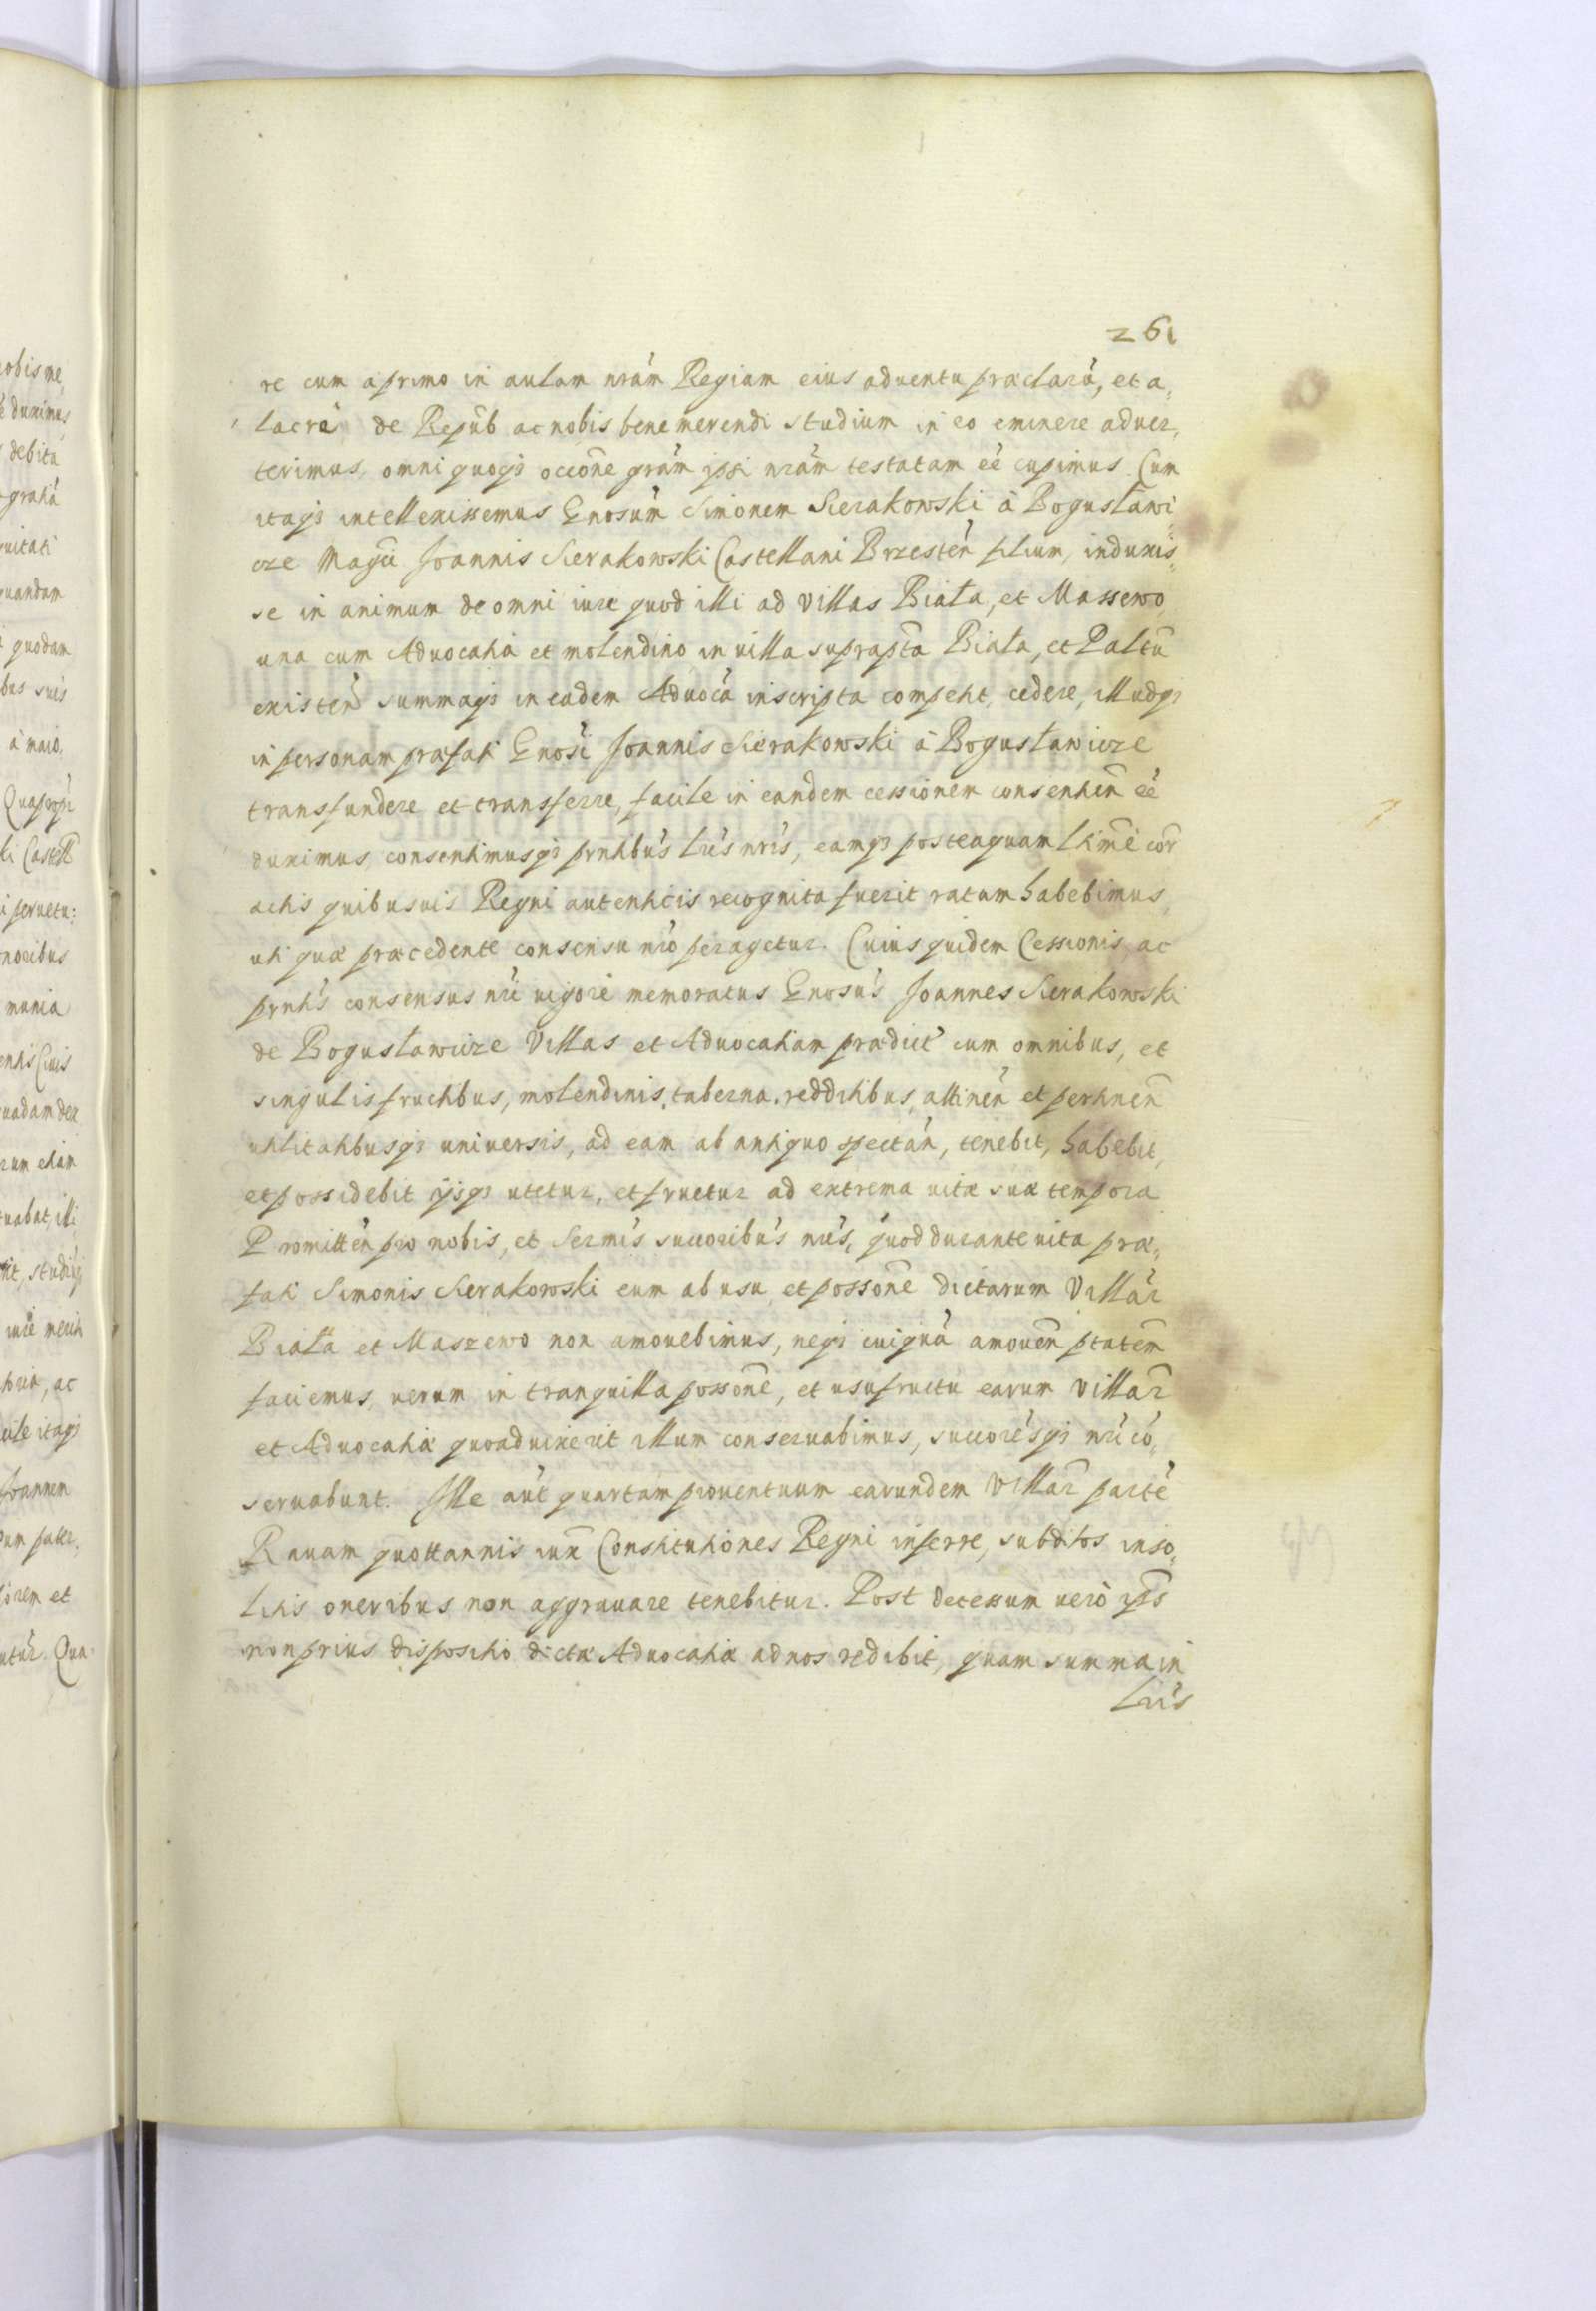 261
re cum a primo in aulam nrãm Regiam eius aduentu præclarũ, et a,
lacrẽ de Repúb ac nobis bene merendi studium in eo eminere aduer,
terimus, omni quoqȝ occõne grãm ipsi nrãm testatam eẽ cupimus. Cum
itaqȝ intellexissemus Gnosum Simonem Sierakowski à Bogusławi,,
cze Magci Joannis Sierakowski Castellani Brzesteñ filium, induxis,,
se in animum de omni iure quod illi ad Villas Biała, et Massewo,
una cum Aduocatia et molendino in uilla suprapta Biała, et Paltũ
existeñ summaqȝ in eadem Aduocã inscripta competit, cedere, illudqȝ
in personam præfati Gnosi Joannis Sierakowski à Bogusławicze
transfundere et transferre, facile in eandem cessionem consentieñ eẽ
duximus, consentimusqȝ pñntibus Lris nris, eamqȝ posteaquam Ltime cor
actis quibusuis Regni autenticis recognita fuerit ratam habebimus,
uti quæ præcedente consensu nrõ peragetur. Cuius quidem Cessionis, ac
pñntis consensus nri uigore memoratus Gnosus Joannes Sierakowski
de Bogusławicze Villas et Aduocatiam prædict cum omnibus, et
singulis fructibus, molendinis, taberna, redditibus, attineñ et pertineñ
utilitatibusqȝ uniuersis, ad eam ab antiquo spectañ, tenebit, habebit,
et possidebit ijsqȝ utetur, et fruetur ad extrema uitæ suæ tempora
Promitteñ pro nobis, et Sermis succoribus nris, quod durante uita præ,,
fati Simonis Sierakowski eum ab usu, et possone dictarum Villar
Biała et Maszewo non amouebimus, neqȝ cuiquã amoueñ ptatem
faciemus, uerum in tranquilla possone, et usufructu earum Villar
et Aduocatiæ quoad uixerit illum conseruabimus, succoresqȝ nri cõ,
seruabunt. Ille aut quartam prouentuum earundem Villar partẽ
Rauam quottannis iux Constitutiones Regni inferre, subditos inso,,
litis oneribus non aggrauare tenebitur. Post decessum uerò ipsis
non prius dispositio dictæ Aduocatiæ ad nos redibit, quam summa in
Lris